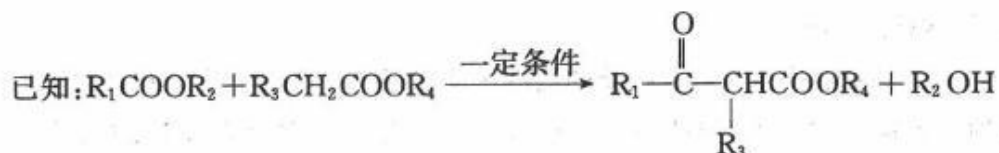 O
已知:R₁COOR₂+R₃CH₂COOR₄ 一定条件 R₁—C—CHCOOR₄+R₂OH
R₃